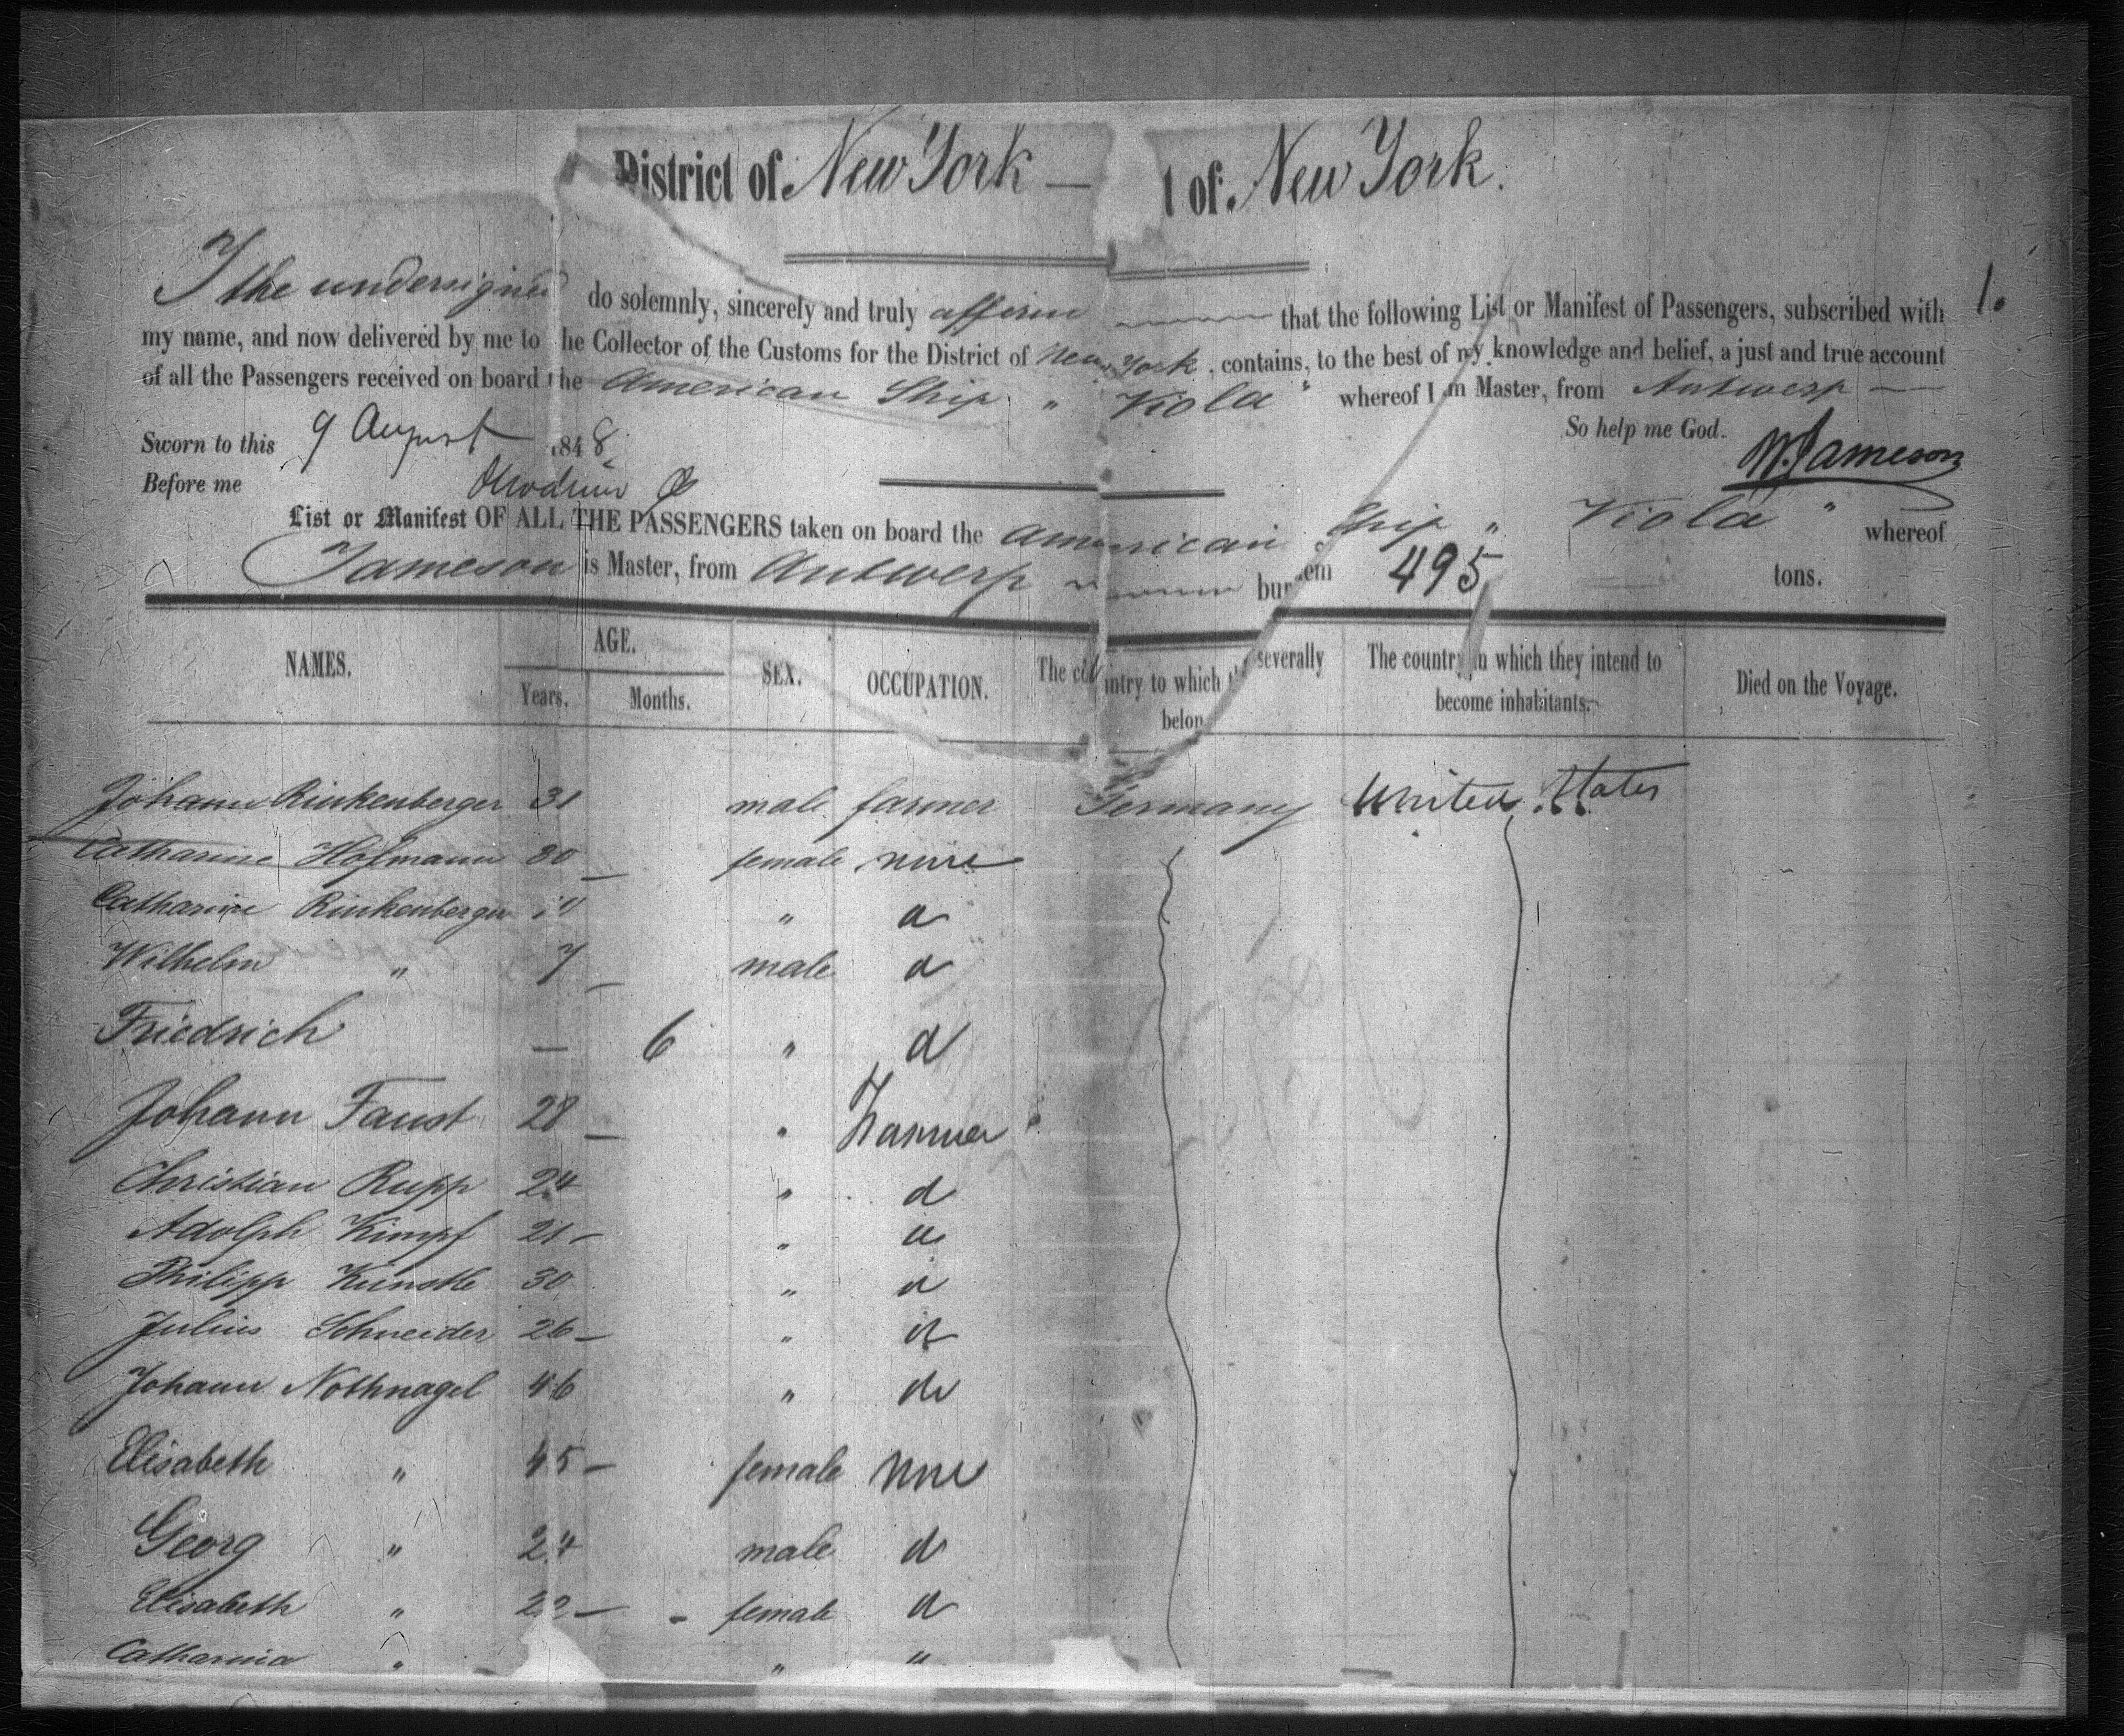 District of New York — t of New York.
I the undersigned do solemnly, sincerely and truly affirm that the following List or Manifest of Passengers, subscribed with 1.
my name, and now delivered by me to he Collector of the Customs for the District of New York, contains, to the best of my knowledge and belief, a just and true account
of all the Passengers received on board the American Ship " Viola " whereof I m Master, from Antwerp —
So help me God.
Sworn to this 9 August 1848 W. Jameson
Before me
List or Manifest OF ALL THE PASSENGERS taken on board the American Ship " Viola " whereof
Jameson is Master, from Antwerp burdem 495 tons.
NAMES. AGE. SEX. OCCUPATION. The country to which th severally The country in which they intend to Died on the Voyage.
Years. Months. belon become inhabitants.
Johann Rinkenberger 31 male farmer Germany United States
Catharine Hofmann 30 — female none
Catharine Rinkenberger " d
Wilhelm " 7 — male d
Friedrich — 6 " d
Johann Faust 28 — " Farmer
Christian Rupp 24 " d
Adolph Kimpf 21 — " d
Philipp Kunstle 30 " d
Julius Schneider 26 — " d
Johann Nothnagel 46 " do
Elisabeth " 45 — female none
Georg " 24 male d
Elisabeth " 22 — - female d
Catharina " " "